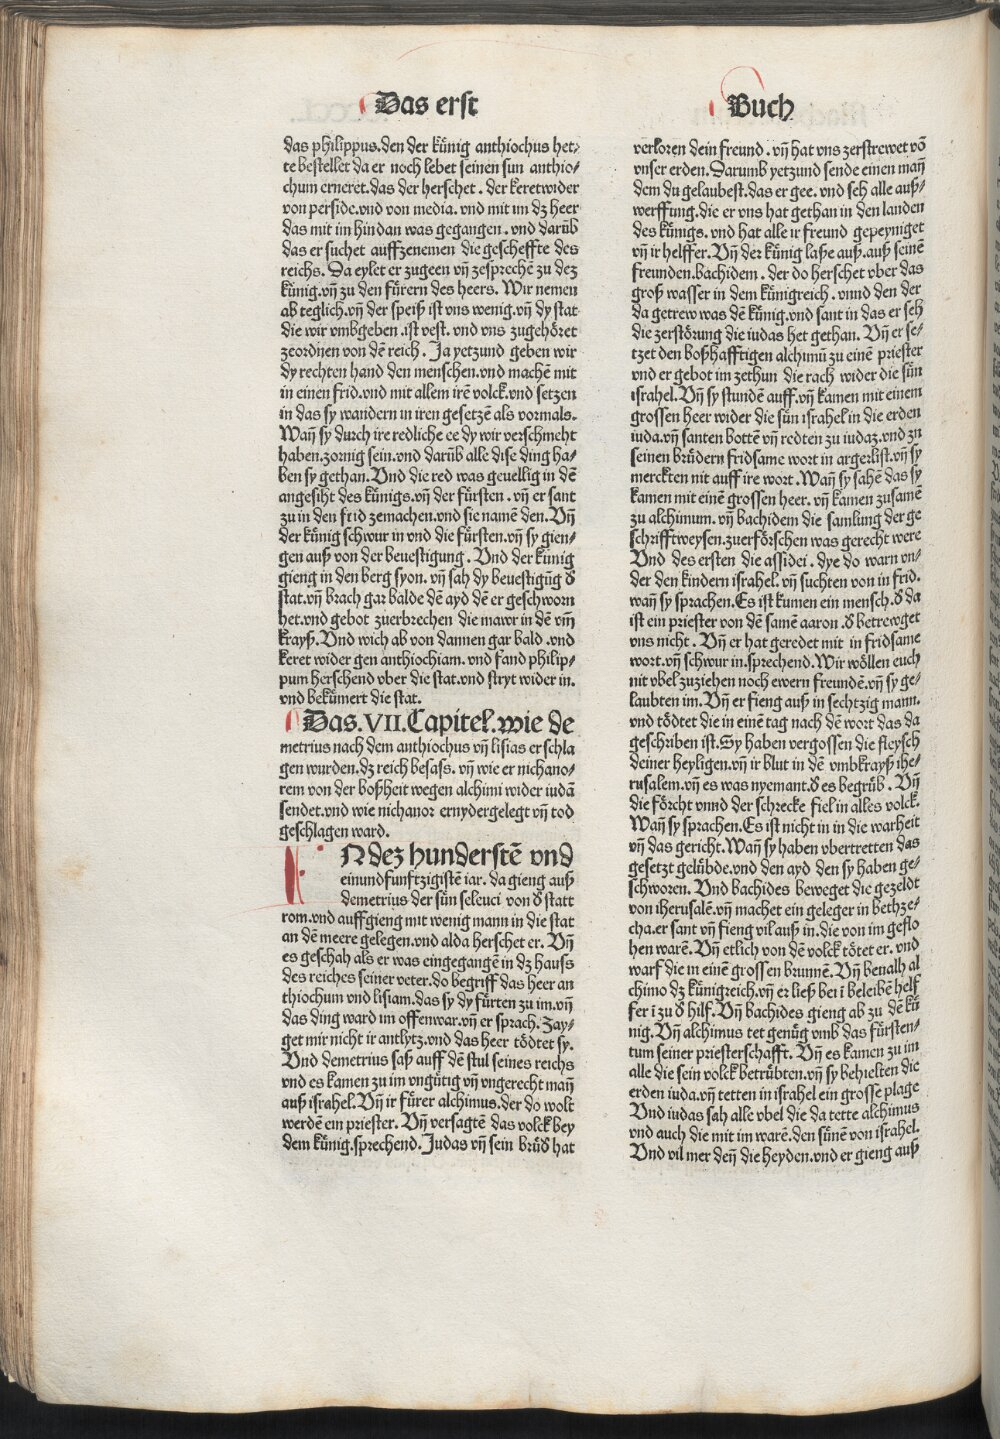 Das erst
Buch
das philippus.den der künig anthiochus het⸗
te bestellet da er noch lebet seinen sun anthio⸗
chum erneret.das der herschet . der keretwider
von perside.vnd von media. vnd mit im dz heer
das mit im hindan was gegangen . vnd darüb
das er suchet auffzenemen die gescheffte des
reichs. Da eylet er zugeen vn̄ zesprechē zu dez
künig.vn̄ zu den fürern des heers. Wir nemen
ab teglich.vn̄ der speiß ist vns wenig.vn̄ dy stat
die wir vmbgeben .ist vest. vnd vns zugehöret
zeordnen von dē reich . Ja yetzund geben wir
dy rechten hand den menschen.vnd machē mit
in einen frid.vnd mit allem irē volck.vnd setzen
in das sy wandern in iren gesetzē als vormals.
Wan̄ sy durch ire redliche ee dy wir verschmeht
haben.zornig sein.vnd darūb alle dise ding ha⸗
ben sy gethan. Vnd die red was geuellig in dē
angesiht des künigs.vn̄ der fürsten . vn̄ er sant
zu in den frid zemachen.vnd sie namē den. Vn̄
der künig schwur in vnd die fürsten.vn̄ sy gien⸗
gen auß von der beuestigung . Vnd der künig
gieng in den berg syon. vn̄ sah dy beuestigūg đ
stat.vn̄ brach gar balde dē ayd dē er geschworn
het.vnd gebot zuerbrechen die mawr in dē vm̄
krayß. Vnd wich ab von dannen gar bald .vnd
keret wider gen anthiochiam. vnd fand philip⸗
pum herschend vber die stat.vnd stryt wider in.
vnd bekümert die stat.
Das.VII.Capitel.wie de
metrius nach dem anthiochus vn̄ lisias erschla
gen wurden.dz reich besass. vn̄ wie er nichano⸗
rem von der boßheit wegen alchimi wider iudā
sendet.vnd wie nichanor ernydergelegt vn̄ tod
geschlagen ward.
IN dez hunderstē vnd
einundfunftzigistē iar. da gieng auß
demetrius der sün seleuci von đ statt
rom.vnd auffgieng mit wenig mann in die stat
an dē meere gelegen.vnd alda herschet er. Vn̄
es geschah als er was eingegangē in dz hauss
des reiches seiner veter.do begriff das heer an
thiochum vnd lisiam.das sy dy fürten zu im.vn̄
das ding ward im offenwar.vn̄ er sprach. Zay⸗
get mir nicht ir antlytz.vnd das heer tödtet sy.
Vnd demetrius saß auff dē stul seines reichs
vnd es kamen zu im vngütig vn̄ vngerecht man̄
auß israhel. Vn̄ ir fürer alchimus.der do wolt
werdē ein priester. Vn̄ versagtē das volck bey
dem künig.sprechend. Judas vn̄ sein brüđ hat
verloren dein freund . vn̄ hat vns zerstrewet vō
vnser erden. Darumb yetzund sende einen man̄
dem du gelaubest.das er gee. vnd seh alle auß⸗
werffung.die er vns hat gethan in den landen
des künigs. vnd hat alle ir freund gepeyniget
vn̄ ir helffer. Vn̄ der künig lasse auß.auß seinē
freunden.bachidem . der do herschet vber das
groß wasser in dem künigreich . vnnd den der
da getrew was dē künig.vnd sant in das er seh
die zerstörung die iudas het gethan. Vn̄ er se⸗
tzet den boßhafftigen alchimū zu einē priester
vnd er gebot im zethun die rach wider die sün
israhel. Vn̄ sy stundē auff.vn̄ kamen mit einem
grossen heer wider die sün israhel in die erden
iuda.vn̄ santen bottē vn̄ redten zu iudaz.vnd zu
seinen brüdern fridsame wort in argerlist.vn̄ sy
merckten nit auff ire wort. Wan̄ sy sahē das sy
kamen mit einē grossen heer. vn̄ kamen zusamē
zu alchimum. vn̄ bachidem die samlung der ge
schrifftweysen.zuerförschen was gerecht were
Vnd des ersten die assidei . dye do warn vn⸗
der den kindern israhel. vn̄ suchten von in frid.
wan̄ sy sprachen. Es ist kumen ein mensch.đ da
ist ein priester von dē samē aaron .đ betrewget
vns nicht . Vn̄ er hat geredet mit in fridsame
wort.vn̄ schwur in.sprechend. Wir wöllen euch
nit vbel zuziehen noch ewern freundē.vn̄ sy ge⸗
laubten im. Vn̄ er fieng auß in sechtzig mann.
vnd tödtet die in einē tag nach dē wort das da
geschriben ist. Sy haben vergossen die fleysch
deiner heyligen.vn̄ ir blut in dē vmbkrayß ihe⸗
rusalem.vn̄ es was nyemant.đ es begrüb . Vn̄
die förcht vnnd der schrecke fiel in alles volck.
Wan̄ sy sprachen. Es ist nicht in in die warheit
vn̄ das gericht. Wan̄ sy haben vbertretten das
gesetzt gelübde.vnd den ayd den sy haben ge⸗
schworen. Vnd bachides beweget die gezeldt
von iherusalē.vn̄ machet ein geleger in bethze⸗
cha.er sant vn̄ fieng vil auß in.die von im geflo
hen warē. Vn̄ etlich von dē volck tötet er. vnd
warf die in einē grossen brunnē. Vn̄ benalh al
chimo dz künigreich.vn̄ er ließ bei ī beleibē helf
fer ī zu đ hilf. Vn̄ bachides gieng ab zu dē kü
nig. Vn̄ alchimus tet genüg vmb das fürsten⸗
tum seiner priesterschafft. Vn̄ es kamen zu im
alle die sein volck betrübten.vn̄ sy behielten die
erden iuda.vn̄ tetten in israhel ein grosse plage
Vnd iudas sah alle vbel die da tette alchimus
vnd auch die mit im warē.den sünē von israhel.
Vnd vil mer den̄ die heyden.vnd er gieng auß